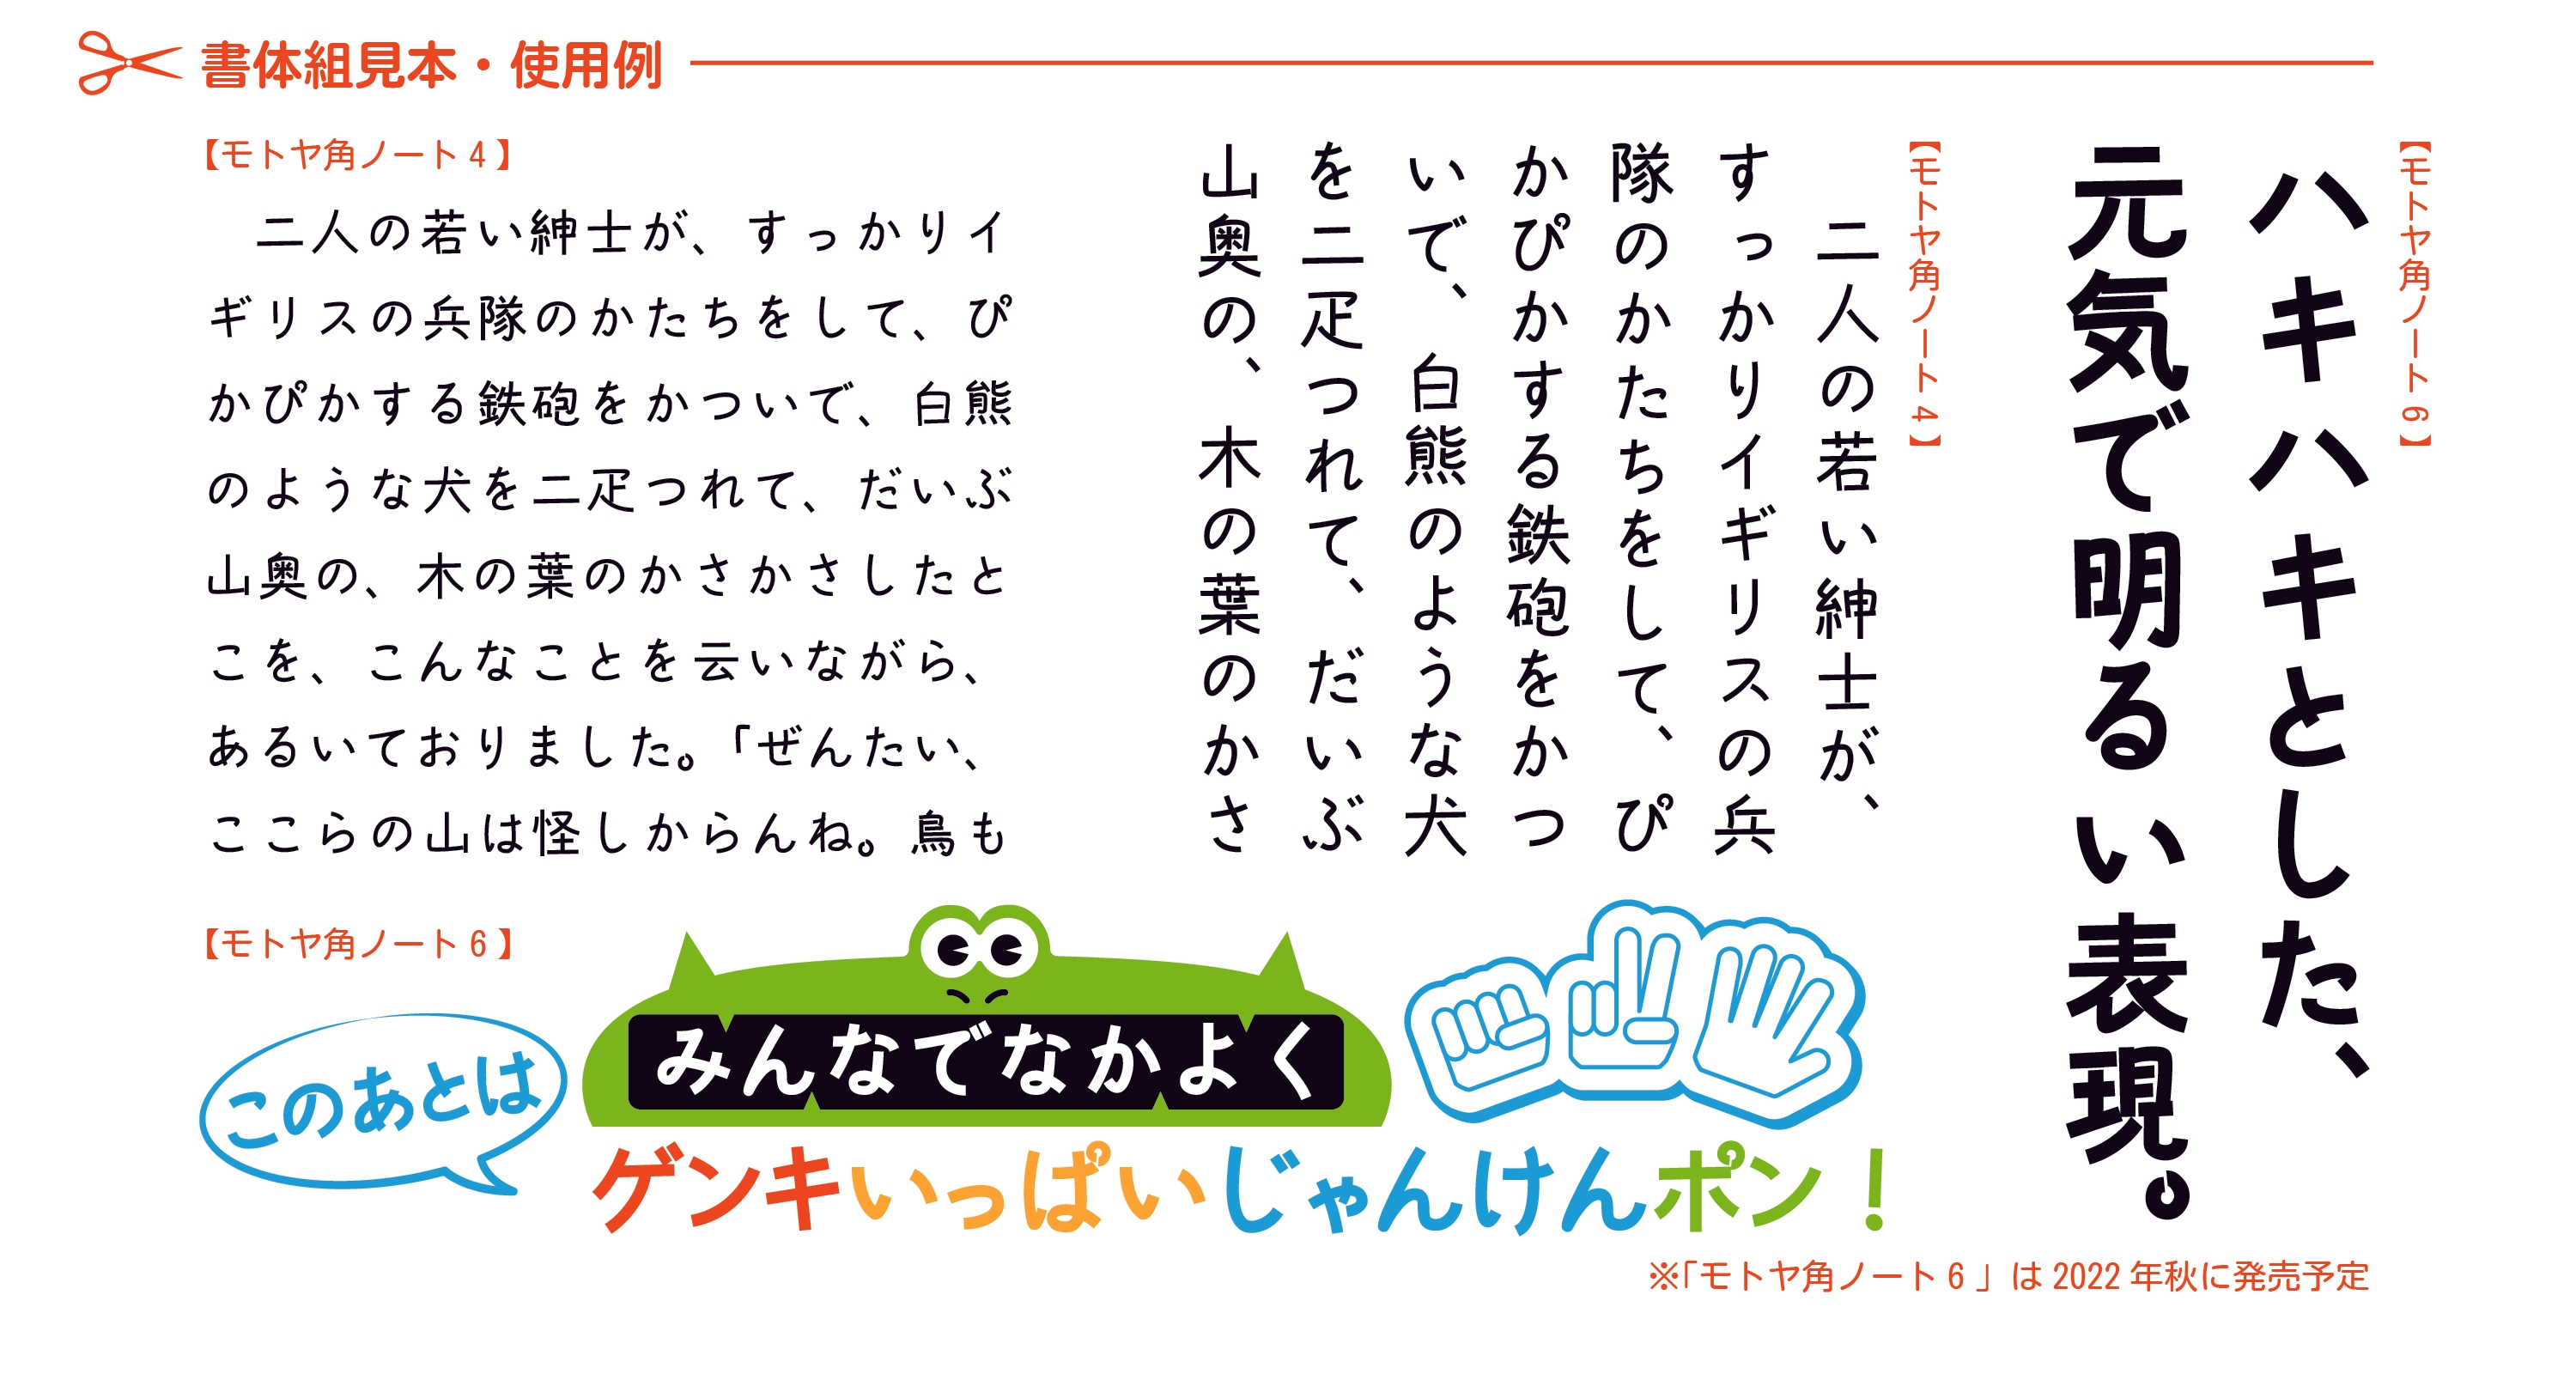 書体組見本・使用例
【モトヤ角ノート6】
ハキハキとした、
元気で明るい表現。
【モトヤ角ノート4】
二人の若い紳士が、
すっかりイギリスの兵
隊のかたちをして、ぴ
かぴかする鉄砲をかつ
いで、白熊のような犬
を二疋つれて、だいぶ
山奥の、木の葉のかさ
【モトヤ角ノート4】
二人の若い紳士が、すっかりイ
ギリスの兵隊のかたちをして、ぴ
かぴかする鉄砲をかついで、白熊
のような犬を二疋つれて、だいぶ
山奥の、木の葉のかさかさしたと
こを、こんなことを云いながら、
あるいておりました。「ぜんたい、
ここらの山は怪しからんね。鳥も
【モトヤ角ノート6】
このあとは
みんなでなかよく
ゲンキいっぱいじゃんけんポン！
※「モトヤ角ノート6」は2022年秋に発売予定